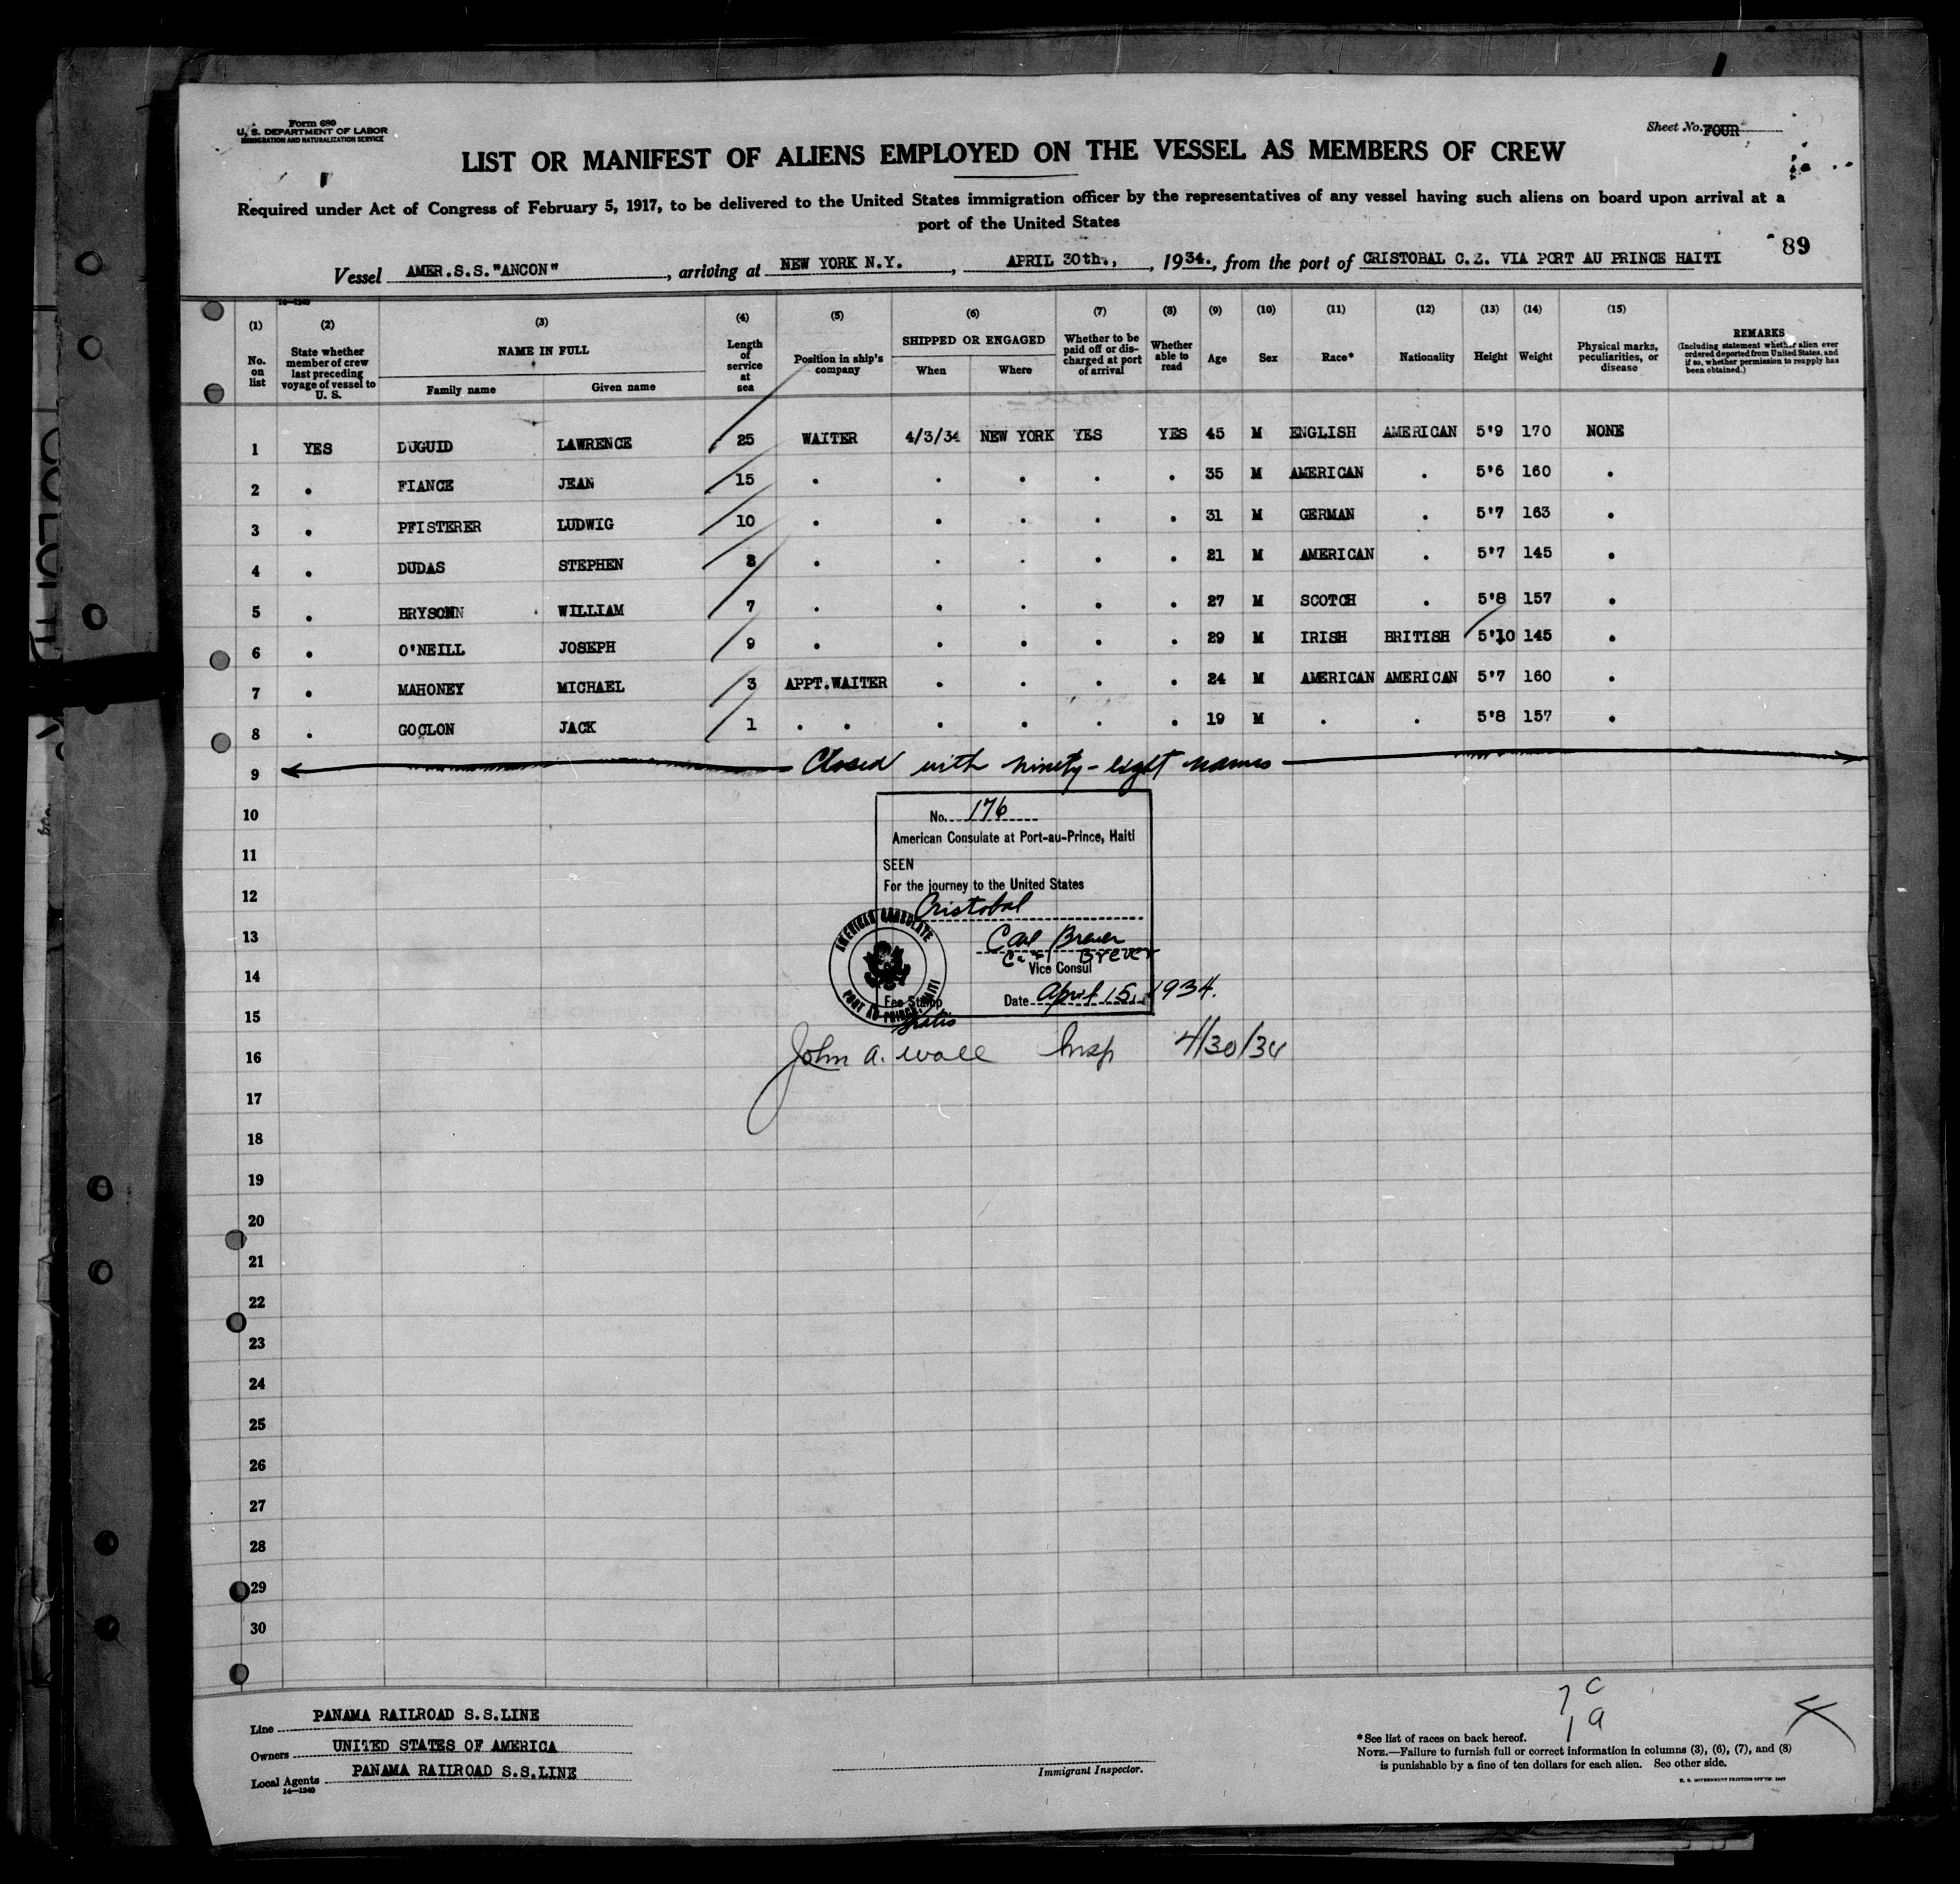 Form 680
U. S. DEPARTMENT OF LABOR
IMMIGRATION AND NATURALIZATION SERVICE
Sheet No. FOUR
LIST OR MANIFEST OF ALIENS EMPLOYED ON THE VESSEL AS MEMBERS OF CREW
Required under Act of Congress of February 5, 1917, to be delivered to the United States immigration officer by the representatives of any vessel having such aliens on board upon arrival at a
port of the United States
89
Vessel AMER.S.S."ANCON", arriving at NEW YORK N.Y., APRIL 30th., 1934., from the port of CRISTOBAL C.Z. VIA PORT AU PRINCE HAITI
14—1240
(1) No. on list
(2) State whether member of crew last preceding voyage of vessel to U. S.
(3) NAME IN FULL
Family name Given name
(4) Length of service at sea
(5) Position in ship's company
(6) SHIPPED OR ENGAGED
When Where
(7) Whether to be paid off or discharged at port of arrival
(8) Whether able to read
(9) Age
(10) Sex
(11) Race*
(12) Nationality
(13) Height
(14) Weight
(15) Physical marks, peculiarities, or disease
REMARKS
(Including statement whether alien ever ordered deported from United States, and if so, whether permission to reapply has been obtained.)
1 YES DUGUID LAWRENCE 25 WAITER 4/3/34 NEW YORK YES YES 45 M ENGLISH AMERICAN 5'9 170 NONE
2 " FIANCE JEAN 15 " " " " " 35 M AMERICAN " 5'6 160 "
3 " PFISTERER LUDWIG 10 " " " " " 31 M GERMAN " 5'7 163 "
4 " DUDAS STEPHEN 3 " " " " " 21 M AMERICAN " 5'7 145 "
5 " BRYSONN WILLIAM 7 " " " " " 27 M SCOTCH " 5'8 157 "
6 " O'NEILL JOSEPH 9 " " " " " 29 M IRISH BRITISH 5'10 145 "
7 " MAHONEY MICHAEL 3 APPT.WAITER " " " " 24 M AMERICAN AMERICAN 5'7 160 "
8 " GOCLON JACK 1 " " " " " " 19 M " " 5'8 157 "
9 Closed with ninety-eight names
10
11
12
13
14
15
16
17
18
19
20
21
22
23
24
25
26
27
28
29
30
No. 176
American Consulate at Port-au-Prince, Haiti
SEEN
For the journey to the United States
Cristobal
Carl Breuer
Carl Breuer
Vice Consul
Date April 15, 1934.
AMERICAN CONSULATE
PORT AU PRINCE, HAITI
Fee Stamp
Gratis
John A. Wall Insp 4/30/34
Line PANAMA RAILROAD S.S.LINE
Owners UNITED STATES OF AMERICA
Local Agents PANAMA RAILROAD S.S.LINE
14—1240
Immigrant Inspector.
7 c
1 a
*See list of races on back hereof.
NOTE.—Failure to furnish full or correct information in columns (3), (6), (7), and (8)
is punishable by a fine of ten dollars for each alien. See other side.